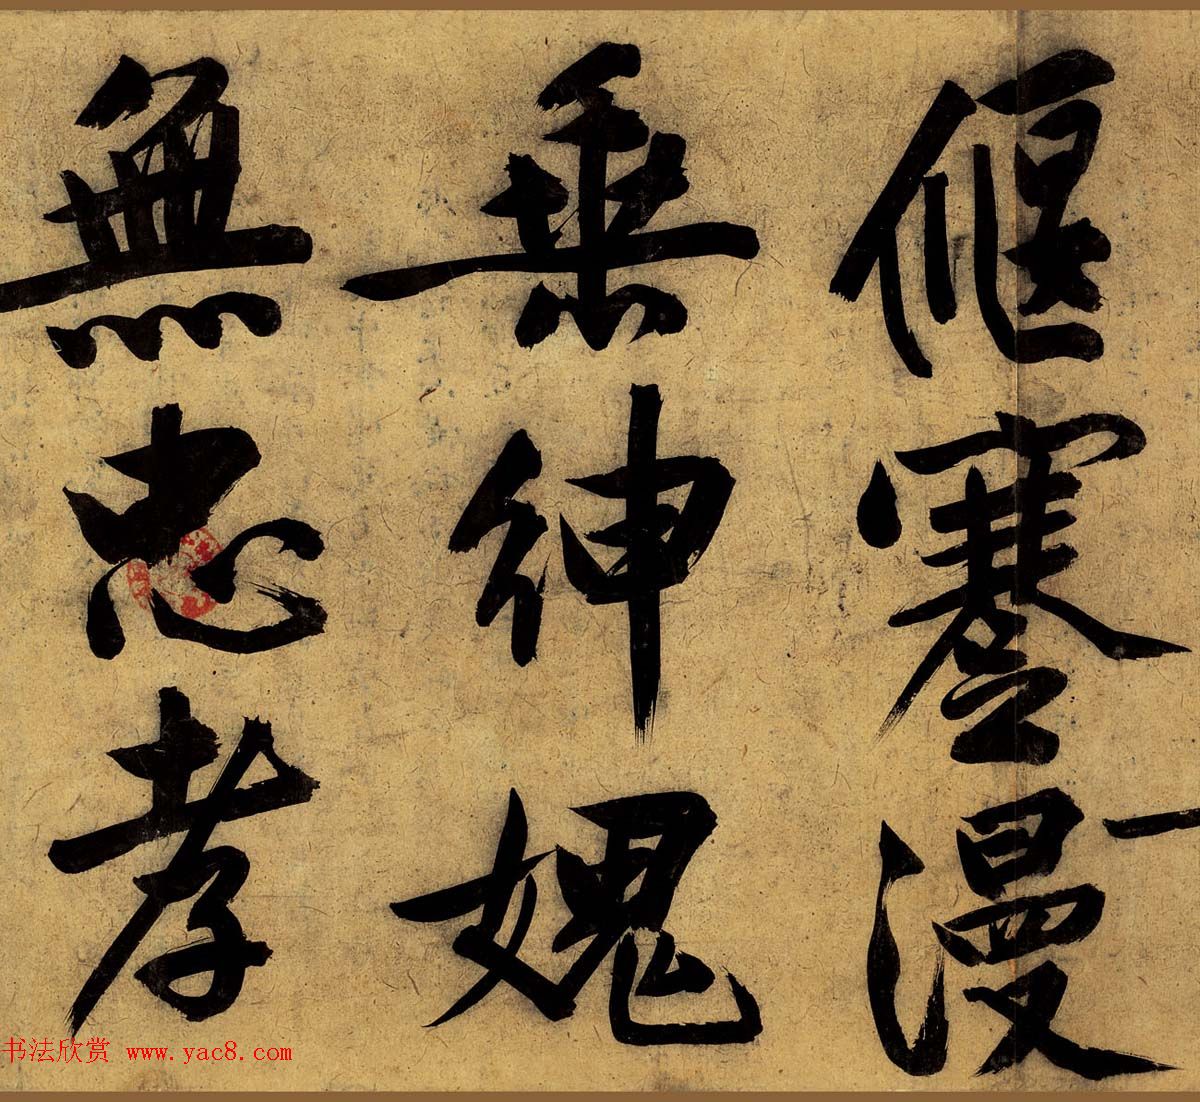 偃蹇漫
垂紳媿
無忠孝
书法欣赏 www.yac8.com